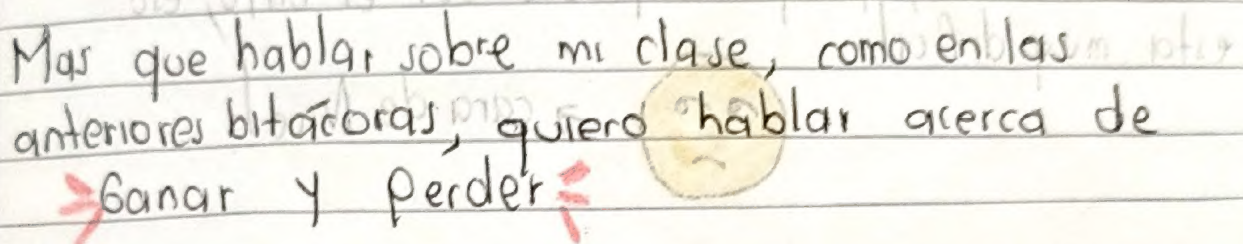 Mas que hablar sobre mi clase, como en las
anteriores bitácoras, quiero hablar acerca de
Ganar y Perder